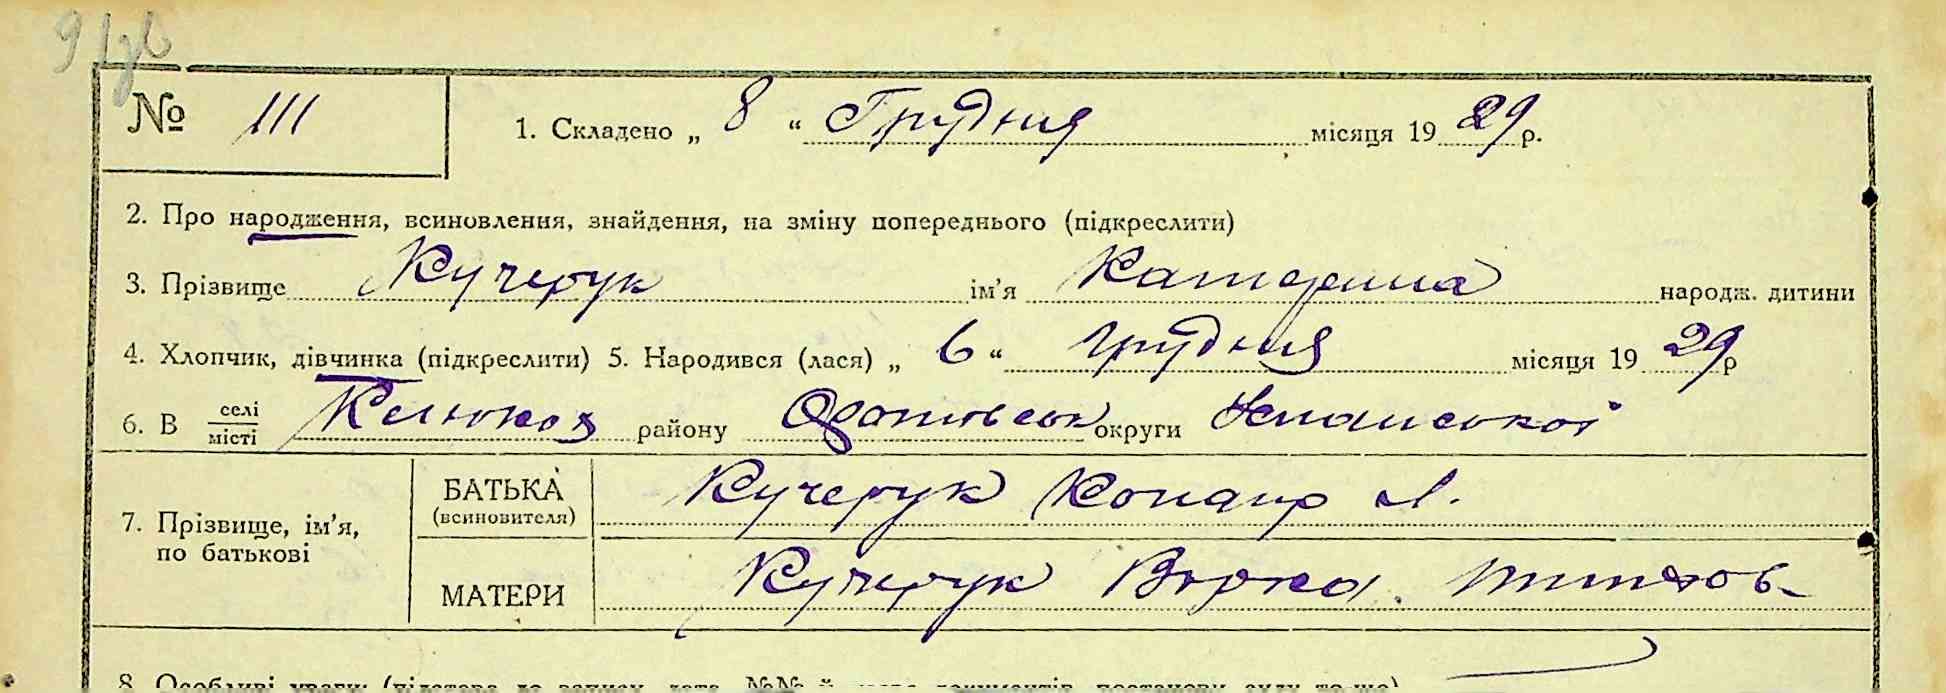 № 111
1. Складено „ 8 “ Грудня місяця 19 29 р.
2. Про народження, всиновлення, знайдення, на зміну попереднього (підкреслити)
3. Прізвище Кучерук ім'я Катерина народж. дитини
4. Хлопчик, дівчинка (підкреслити) 5. Народився (лася) „ 6 “ грудня місяця 19 29 р
6. В селі
місті
Клюков району Оратовськ округи Уманської
7. Прізвище, ім'я,
по батькові
БАТЬКА
(всиновителя)
Кучерук Конанр Л.
МАТЕРИ
Кучерук Вірка
8. Особливі уваги (підстава до запису, дата, №№ й назва документів, постанови суду то-що)